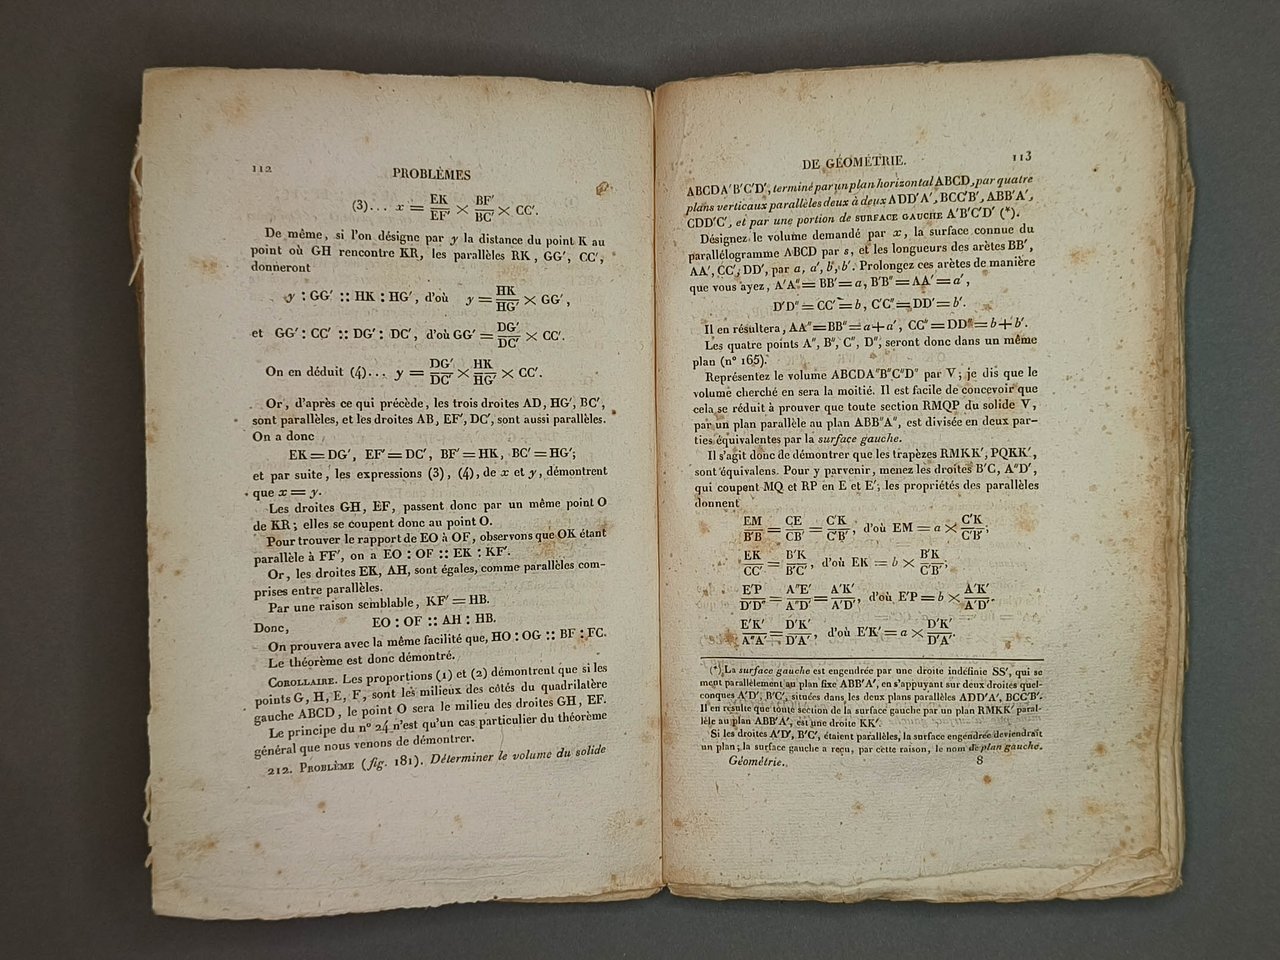 112
PROBLÈMES
(3)... x = EK/EF' × BF'/BC' × CC'.
De même, si l'on désigne par y la distance du point K au
point où GH rencontre KR, les parallèles RK, GG', CC',
donneront
y : GG' :: HK : HG', d'où y = HK/HG' × GG',
et GG' : CC' :: DG' : DC', d'où GG' = DG'/DC' × CC'.
On en déduit (4)... y = DG'/DC' × HK/HG' × CC'.
Or, d'après ce qui précède, les trois droites AD, HG', BC',
sont parallèles, et les droites AB, EF', DC', sont aussi parallèles.
On a donc
EK = DG', EF' = DC', BF' = HK, BC' = HG';
et par suite, les expressions (3), (4), de x et y, démontrent
que x = y.
Les droites GH, EF, passent donc par un même point O
de KR; elles se coupent donc au point O.
Pour trouver le rapport de EO à OF, observons que OK étant
parallèle à FF', on a EO : OF :: EK : KF'.
Or, les droites EK, AH, sont égales, comme parallèles com-
prises entre parallèles.
Par une raison semblable, KF' = HB.
Donc, EO : OF :: AH : HB.
On prouvera avec la même facilité que, HO : OG :: BF : FC.
Le théorème est donc démontré.
COROLLAIRE. Les proportions (1) et (2) démontrent que si les
points G, H, E, F, sont les milieux des côtés du quadrilatère
gauche ABCD, le point O sera le milieu des droites GH, EF.
Le principe du n° 24 n'est qu'un cas particulier du théorème
général que nous venons de démontrer.
212. PROBLÈME (fig. 181). Déterminer le volume du solide
DE GÉOMÉTRIE.
113
ABCDA'B'C'D', terminé par un plan horizontal ABCD, par quatre
plans verticaux parallèles deux à deux ADD'A', BCC'B', ABB'A',
CDD'C', et par une portion de SURFACE GAUCHE A'B'C'D' (*).
Désignez le volume demandé par x, la surface connue du
parallélogramme ABCD par s, et les longueurs des arêtes BB',
AA', CC', DD', par a, a', b, b'. Prolongez ces arêtes de manière
que vous ayez, A'A" = BB' = a, B'B" = AA' = a',
D'D" = CC' = b, C'C" = DD' = b'.
Il en résultera, AA" = BB" = a + a', CC" = DD" = b + b'.
Les quatre points A", B", C", D", seront donc dans un même
plan (n° 165).
Représentez le volume ABCDA"B"C"D" par V; je dis que le
volume cherché en sera la moitié. Il est facile de concevoir que
cela se réduit à prouver que toute section RMQP du solide V,
par un plan parallèle au plan ABB"A", est divisée en deux par-
ties équivalentes par la surface gauche.
Il s'agit donc de démontrer que les trapèzes RMKK', PQKK',
sont équivalens. Pour y parvenir, menez les droites B'C, A"D',
qui coupent MQ et RP en E et E'; les propriétés des parallèles
donnent
EM/B'B = CE/CB' = C'K/C'B', d'où EM = a × C'K/C'B';
EK/CC' = B'K/B'C', d'où EK = b × B'K/C'B';
E'P/D'D" = A"E'/A"D' = A'K'/A'D', d'où E'P = b × A'K'/A'D'.
E'K'/A"A' = D'K'/D'A', d'où E'K' = a × D'K'/D'A'.
(*) La surface gauche est engendrée par une droite indéfinie SS', qui se
ment parallèlement au plan fixe ABB'A', en s'appuyant sur deux droites quel-
conques A'D', B'C', situées dans les deux plans parallèles ADD'A', BCC'B'.
Il en résulte que toute section de la surface gauche par un plan RMKK' paral-
lèle au plan ABB'A', est une droite KK'.
Si les droites A'D', B'C', étaient parallèles, la surface engendrée deviendrait
un plan; la surface gauche a reçu, par cette raison, le nom de plan gauche.
Géométrie.
8